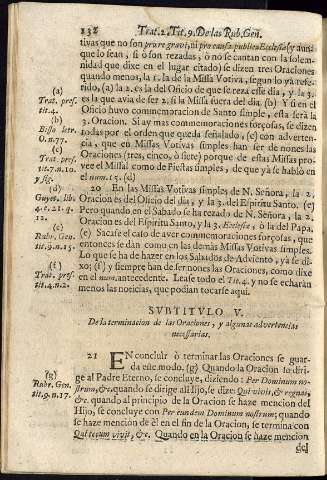 132 Trat. 2. Tit. 9. De las Rub. Gen.
tivas que no son pro re gravi, ni pro causa publica Ecclesiæ (y aun-
que lo sean, si ò son rezadas, ò no se cantan con la solem-
nidad que dixe en el lugar citado) se dizen tres Oraciones
quando menos, la 1. la de la Missa Votiva, segun lo yà refe-
rido, (a) la 2. es la del Oficio de que se reza este dia, y la 3.
es la que avia de ser 2. si la Missa fuera del dia. (b) Y si en el
Oficio huvo commemoracion de Santo simple, esta serà la
3. Oracion. Si ay mas commemoraciones forçosas, se dizen
todas por el orden que queda señalado, (c) con adverten-
cia, que en Missas Votivas simples han de ser nones las
Oraciones (tres, cinco, ò siete) porque de estas Missas pro-
vee el Missal como de Fiestas simples, de que yà se hablò en
el num. 15. (a)
20 En las Missas Votivas simples de N. Señora, la 2.
Oracion es del Oficio del dia, y la 3. del Espiritu Santo. (e)
Pero quando en el Sabado se ha rezado de N. Señora, la 2.
Oracion es del Espiritu Santo, y la 3. Ecclesiæ, ò la del Papa.
(e) Sacase el caso de aver commemoraciones forçosas, que
entonces se dàn como en las demàs Missas Votivas simples.
Lo que se ha de hazer en los Sabados de Adviento, yà se di-
xo; (f) y siempre han de ser nones las Oraciones, como dixe
en el num. antecedente. Lease todo el Tit. 4. y no se echaràn
menos las noticias, que podian tocarse aqui.
(a)
Trat. pres.
tit. 4.
(b)
Bisso letr.
O. n. 77.
(c)
Trat. pres.
tit. 7. n. 10.
y sig.
(d)
Guyet. lib.
4. c. 21. q.
12.
(e)
Rubr. Gen.
tit. 9. n. 15.
(f)
Trat. pres.
tit. 4. n. 2.
SUBTITULO V.
De la terminacion de las Oraciones, y algunas advertencias
necessarias.
21 EN concluir ò terminar las Oraciones se guar-
da este modo. (g) Quando la Oracion se diri-
ge al Padre Eterno, se concluye, diziendo: Per Dominum no-
strum, &c. quando se dirige al Hijo, se dize: Qui vivis, & regnas,
&c. quando al principio de la Oracion se haze mencion del
Hijo, se concluye con Per eundem Dominum nostrum; quando
se haze mencion de èl en el fin de la Oracion, se termina con
Qui tecum vivit, &c. Quando en la Oracion se haze mencion
(g)
Rubr. Gen.
tit. 9. n. 17.
del